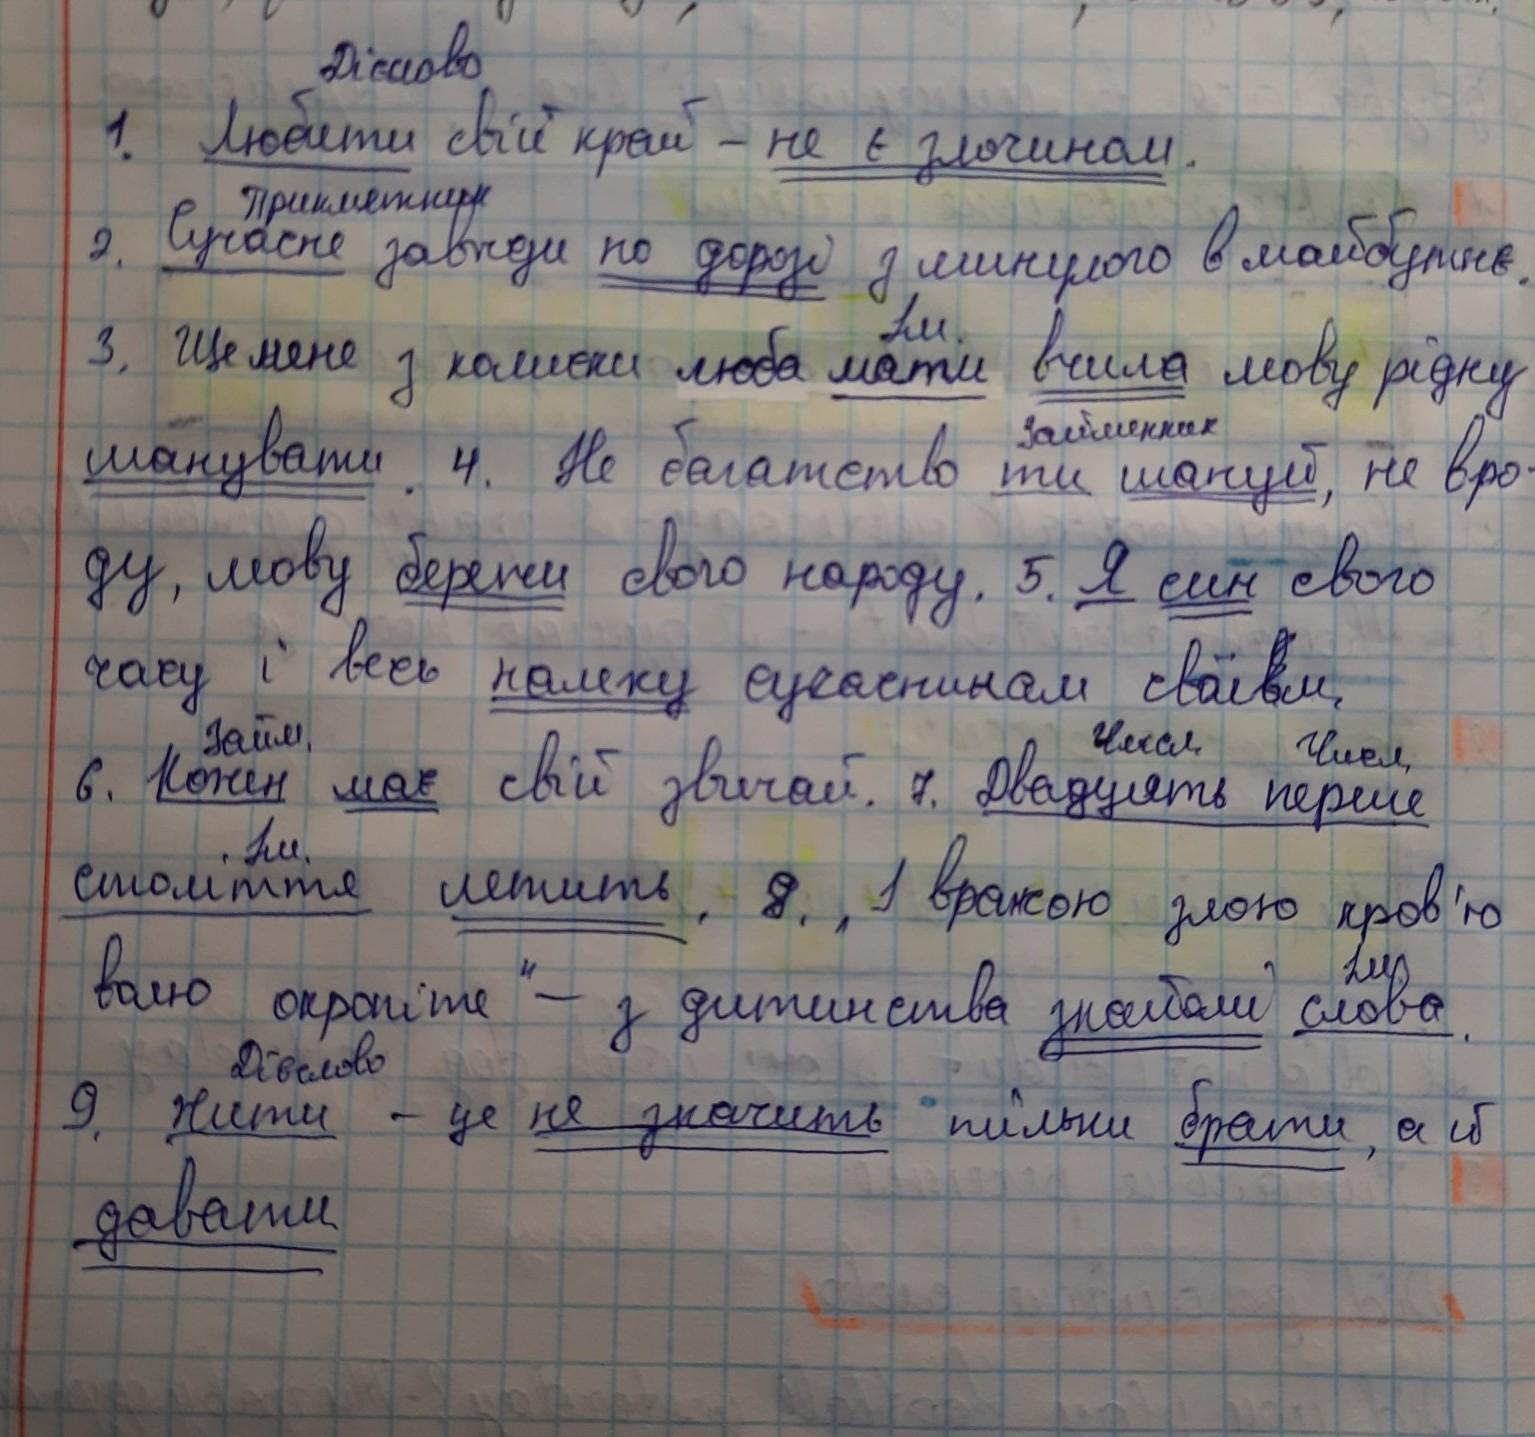 Дієслово
1. Любити свій край – не є злочином.
Прикметник
2. Сучасне завжди по дорозі з минулого в майбутнє.
Ім.
3. Ще мене з колиски люба мати вчила мову рідну
Займенник
шанувати. 4. Не багатство ти шануй, не вро-
ду, мову бережи свого народу. 5. Я син свого
часу і весь належу сучасникам своїм.
Займ. Числ. Числ.
6. Кожен має свій звичай. 7. Двадцять перше
Ім.
століття летить. 8. „І вражою злою кров'ю
Ім
волю окропіте" – з дитинства знайомі слова.
Дієслово
9. Жити – це не значить тільки брати, а й
давати